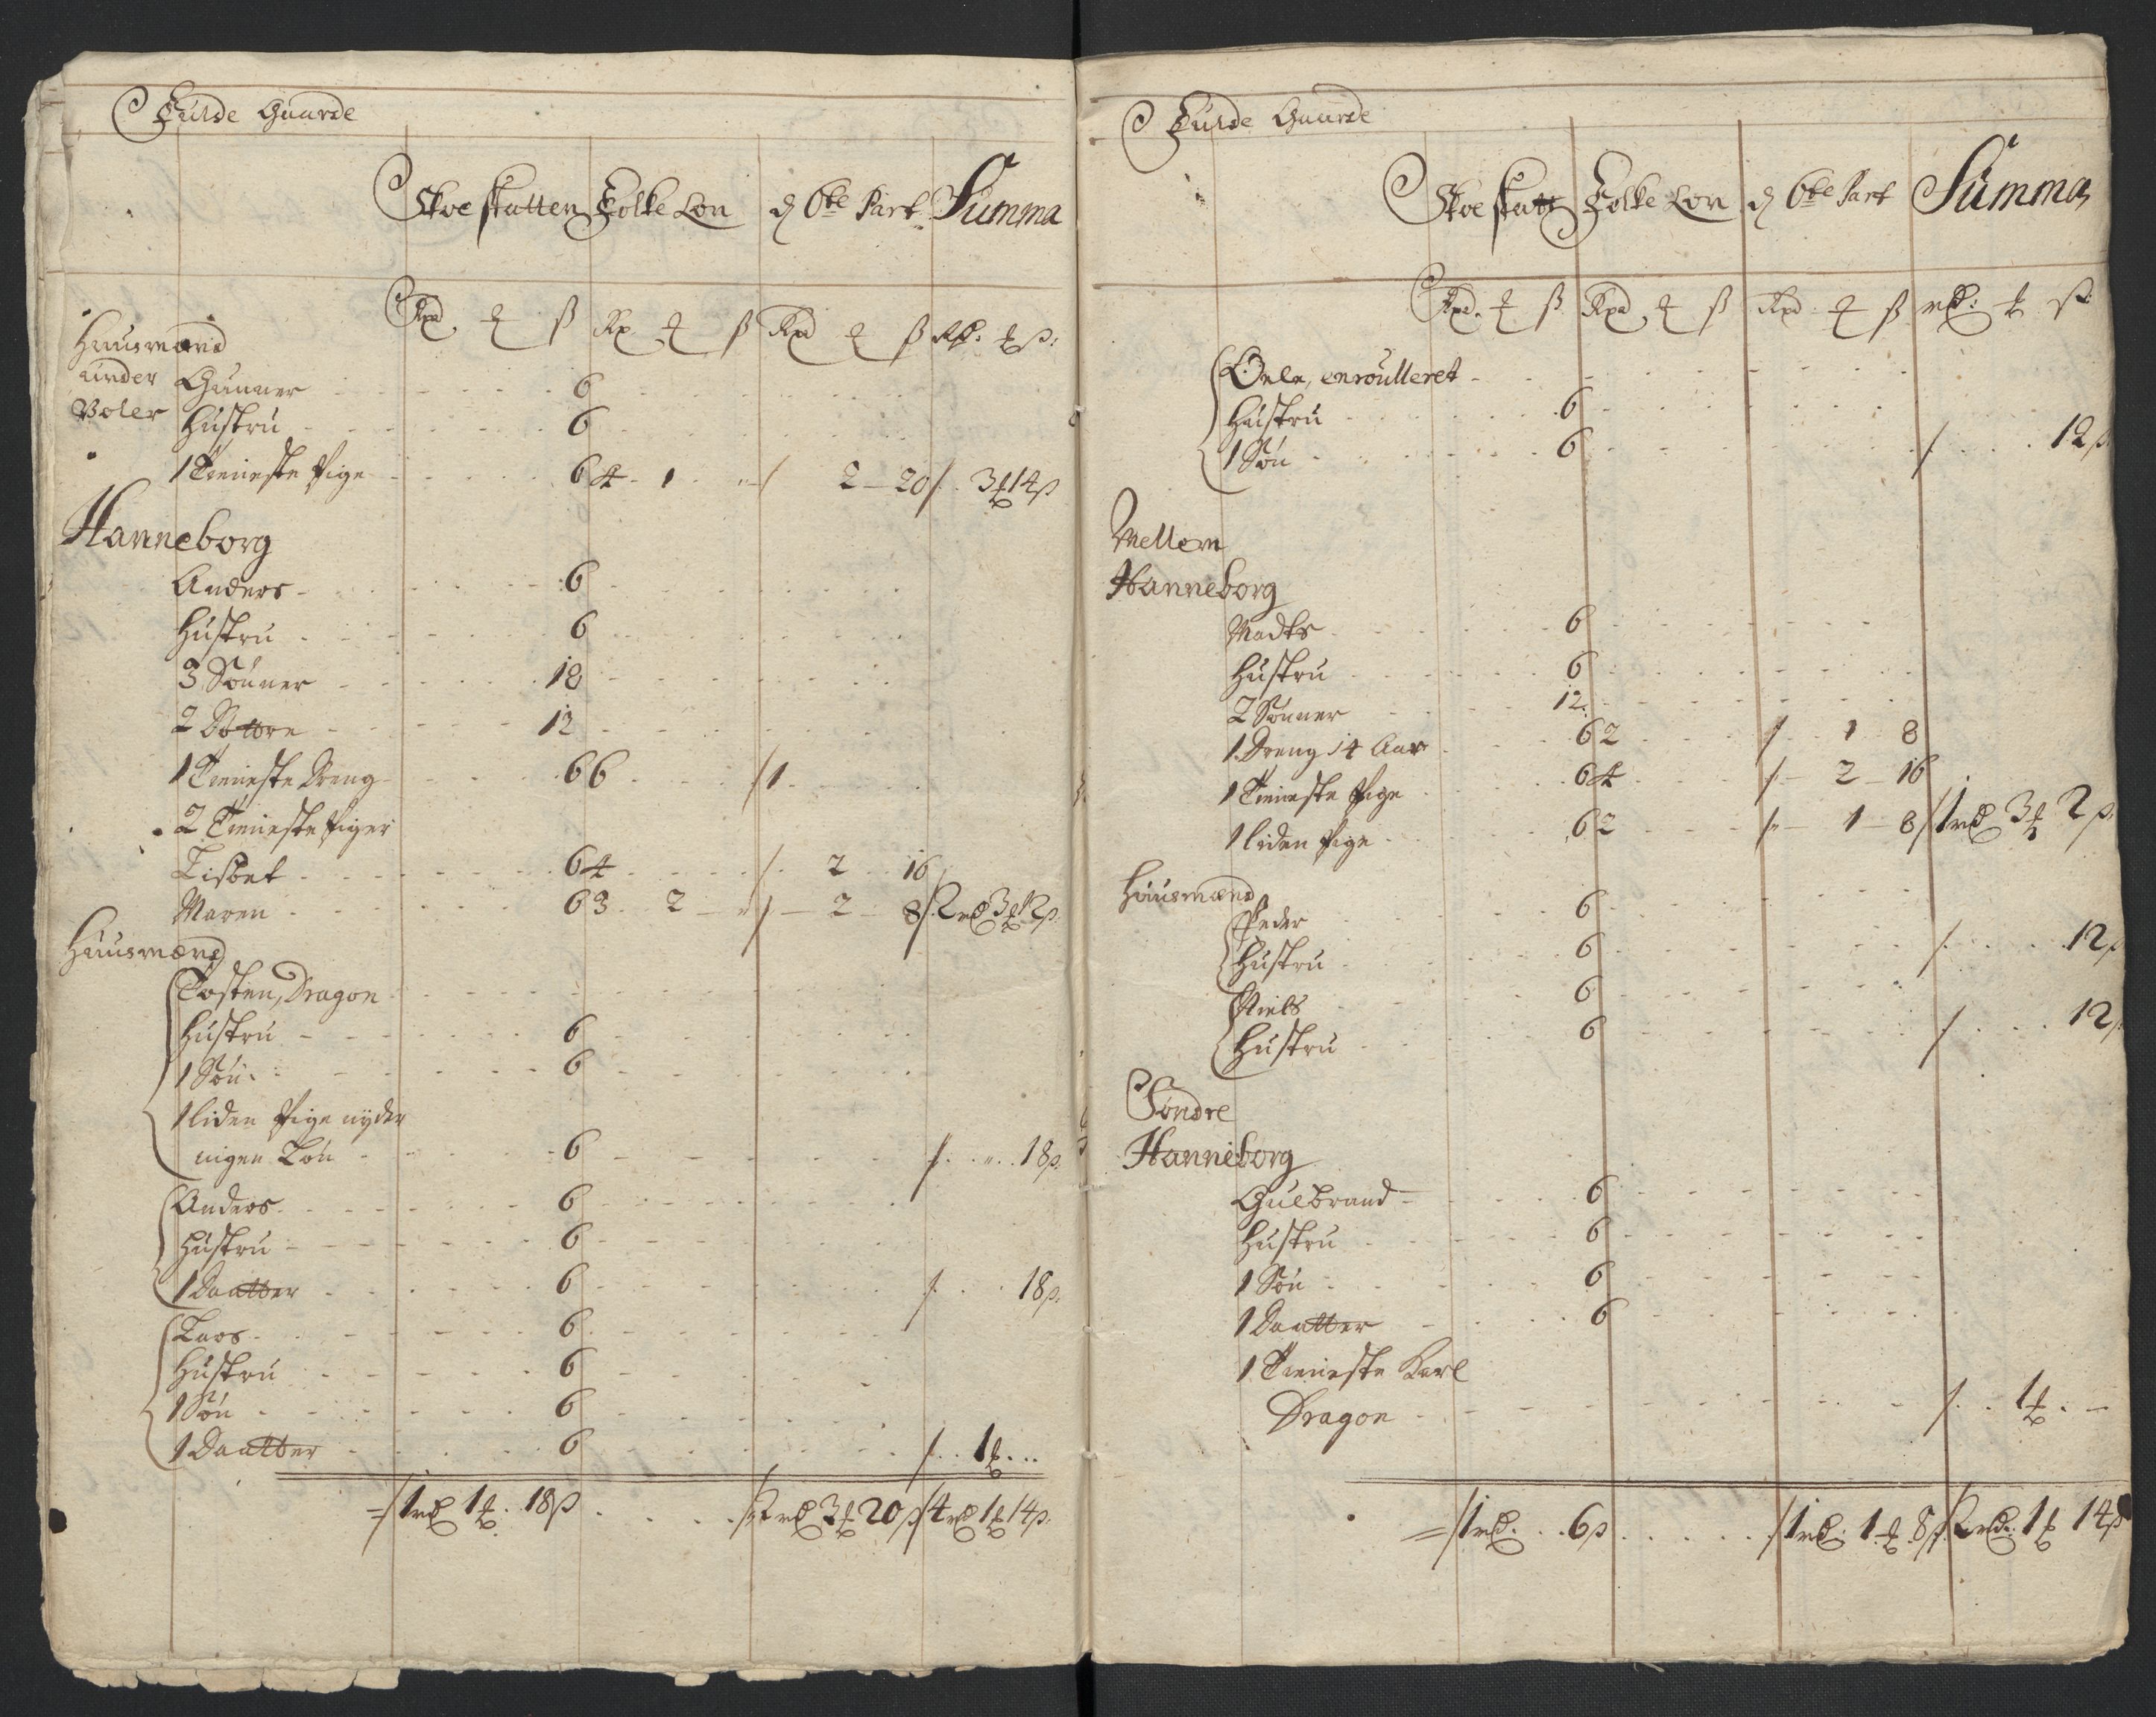 Fulde Gaarde
Skoe skatten Folke Lon d 6te Part Summa
Rd. ß Rd ß Rd ß Rd: ß:
Huusmænd
under Gunner 6
Boler Hustru 6
1 Tieneste Pige 6 4 - 1 2 - 20 3 14 ß
Hanneborg
Anders 6
Hustru 6
3 Sønner 18
2 Døttre 12
1 Tieneste Dreng 6 6 1
2 Tieneste Piger
Lisbet 6 4 2 16
Maren 6 3 2 2 8 2 rd 3 12 ß
Huusmænd
Tosten, Dragon
Hustru 6
1 Søn 6
1 liden Pige nyder
ingen Løn 6 18 ß
Anders 6
Hustru 6
1 Daatter 6 18 ß
Lars 6
Hustru 6
1 Søn 6
1 Daatter 6 1
1 rd 1 18 ß 2 rd 3 20 ß 4 rd 1 14 ß
Fulde Gaarde
Skoe skatt Folke Lon d 6te Part Summa
Rd. ß Rd ß Rd ß rd: ß
Oele, enroulleret
Hustru 6
1 Søn 6 12 ß
Mellem
Hanneborg
Madts 6
Hustru 6
2 Sønner 12
1 Dreng 14 Aar 6 2 1 8
1 Tieneste Pige 6 4 2 16
1 liden Pige 6 2 1 8 1 rd 3 2 ß
Huusmænd
Peder 6
Hustru 6 12 ß
Niels 6
Hustru 6 12 ß
Søndre
Hanneborg
Gulbrand 6
Hustru 6
1 Søn 6
1 Daatter 6
1 Tieneste Karl
Dragon 1
1 rd 6 ß 1 rd 1 8 ß 2 rd 1 14 ß